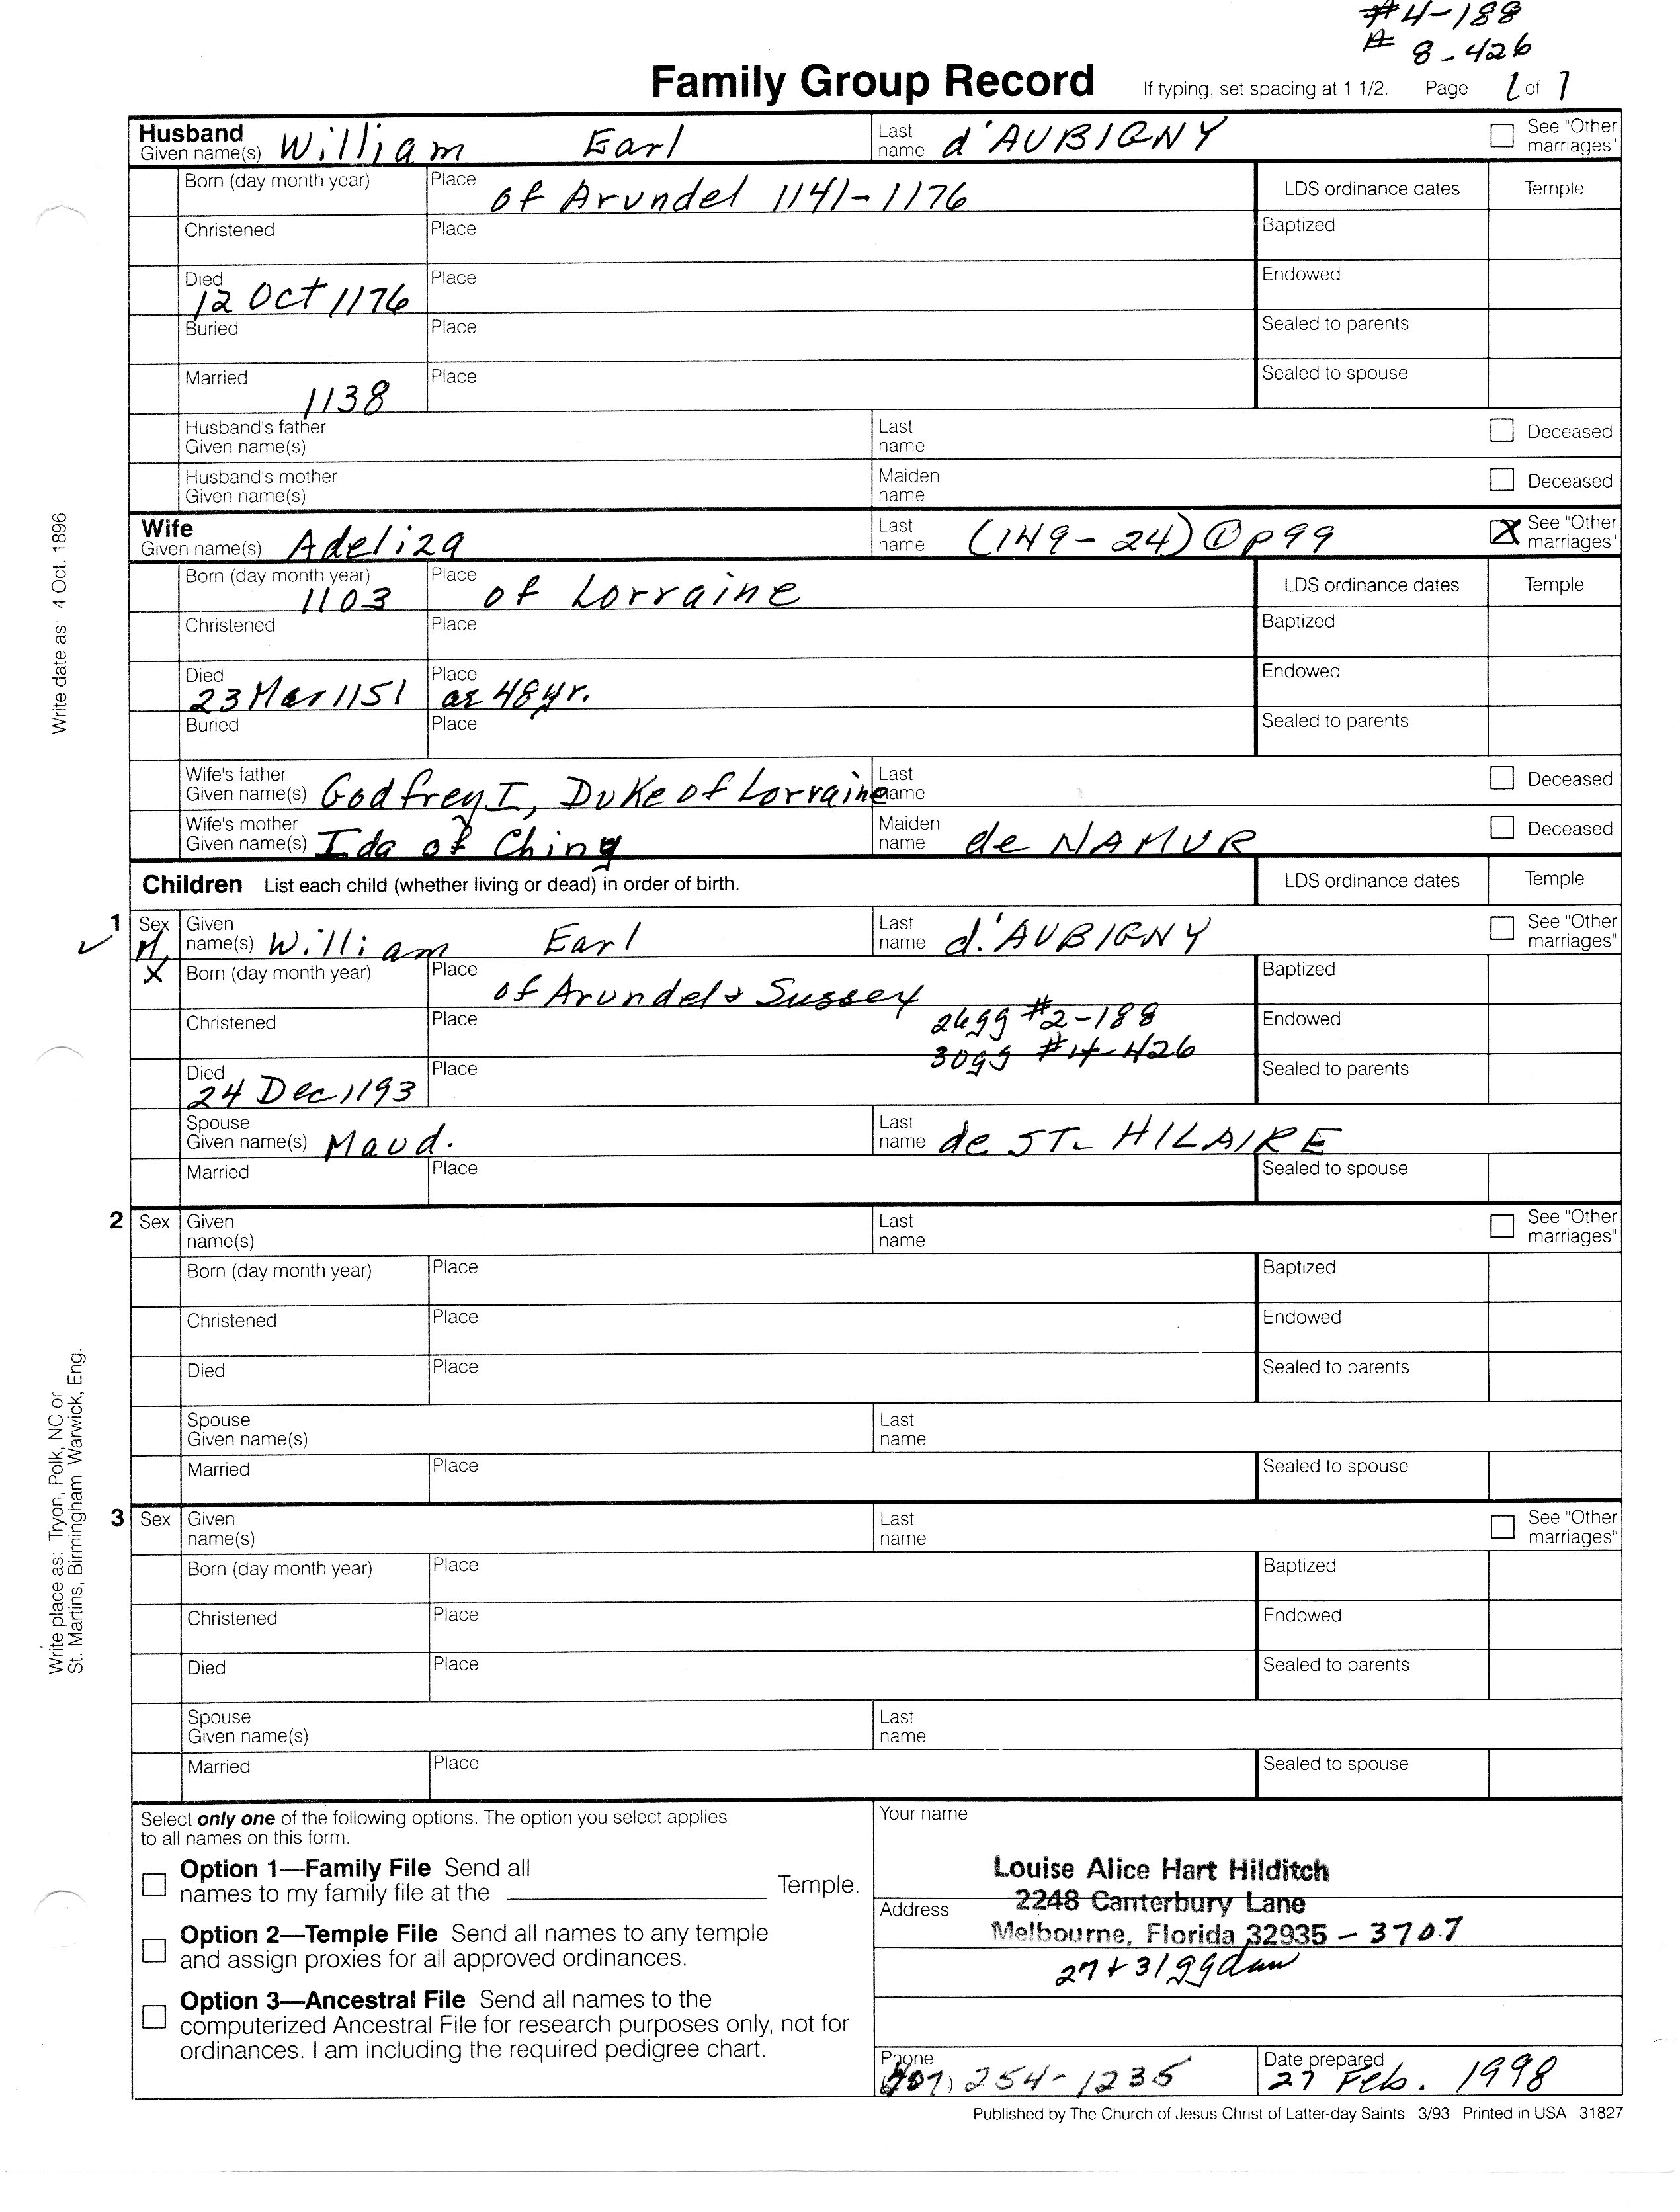 #4-188
# 8-426
Family Group Record If typing, set spacing at 1 1/2. Page 1 of 1
Husband Given name(s) William Earl Last name d'AUBIGNY See "Other marriages"
Born (day month year) Place of Arundel 1141-1176 LDS ordinance dates Temple
Christened Place Baptized
Died 12 Oct 1176 Place Endowed
Buried Place Sealed to parents
Married 1138 Place Sealed to spouse
Husband's father Given name(s) Last name Deceased
Husband's mother Given name(s) Maiden name Deceased
Wife Given name(s) Adeliza Last name (149-24) @p99 X See "Other marriages"
Born (day month year) 1103 Place of Lorraine LDS ordinance dates Temple
Christened Place Baptized
Died 23 Mar 1151 Place ae 48 yr. Endowed
Buried Place Sealed to parents
Wife's father Given name(s) Godfrey I, Duke of Lorraine Last name Deceased
Wife's mother Given name(s) Ida of Chiny Maiden name de NAMUR Deceased
Children List each child (whether living or dead) in order of birth. LDS ordinance dates Temple
1 Sex M Given name(s) William Earl Last name d'AUBIGNY See "Other marriages"
X Born (day month year) Place of Arundel & Sussex Baptized
Christened Place 26gg #2-188 Endowed
30gg #4-426
Died 24 Dec 1193 Place Sealed to parents
Spouse Given name(s) Maud. Last name de ST. HILAIRE
Married Place Sealed to spouse
2 Sex Given name(s) Last name See "Other marriages"
Born (day month year) Place Baptized
Christened Place Endowed
Died Place Sealed to parents
Spouse Given name(s) Last name
Married Place Sealed to spouse
3 Sex Given name(s) Last name See "Other marriages"
Born (day month year) Place Baptized
Christened Place Endowed
Died Place Sealed to parents
Spouse Given name(s) Last name
Married Place Sealed to spouse
Write date as: 4 Oct. 1896
Write place as: Tryon, Polk, NC or
St. Martins, Birmingham, Warwick, Eng.
Select only one of the following options. The option you select applies
to all names on this form.
Option 1—Family File Send all
names to my family file at the Temple.
Option 2—Temple File Send all names to any temple
and assign proxies for all approved ordinances.
Option 3—Ancestral File Send all names to the
computerized Ancestral File for research purposes only, not for
ordinances. I am including the required pedigree chart.
Your name
Louise Alice Hart Hilditch
Address 2248 Canterbury Lane
Melbourne, Florida 32935 - 3707
27 + 31 gg dau
Phone (407) 254-1235 Date prepared 27 Feb. 1998
Published by The Church of Jesus Christ of Latter-day Saints 3/93 Printed in USA 31827